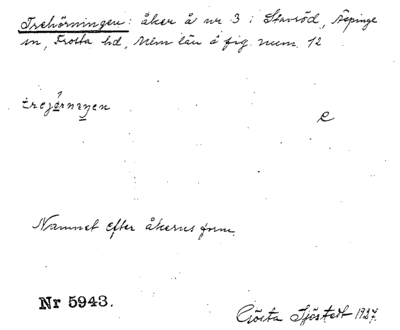 Trehörningen: åker å nr 3 i Stavröd, Äspinge
sn, Frosta hd, Mlm län å fig. num. 12
trejö̂rnıŋen
e
Namnet efter åkerns form.
Nr 5943.
Gösta Sjöstedt 1927.